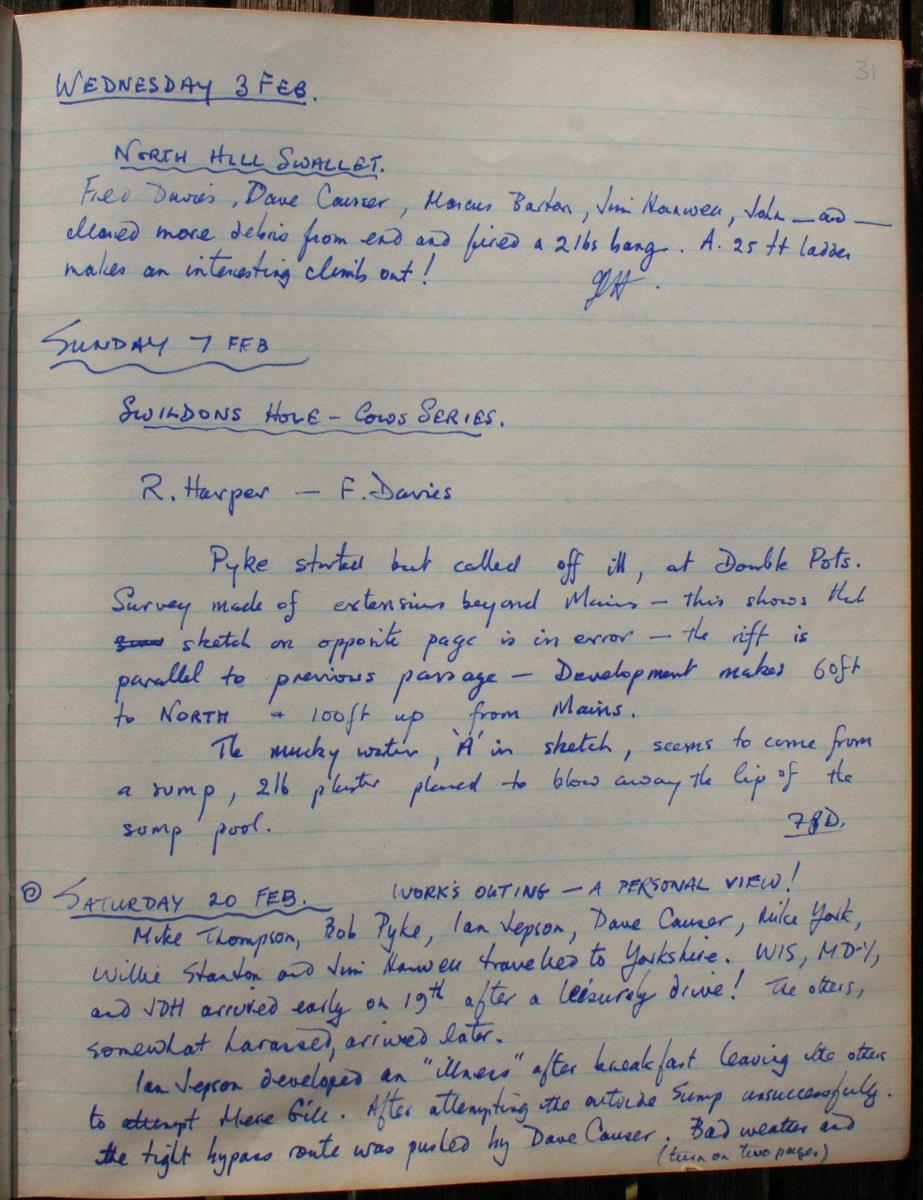 31
WEDNESDAY 3 FEB.
NORTH HILL SWALLET.
Fred Davies, Dave Causer, Marcus Barton, Jim Hanwell, John — and —
cleared more debris from end and fired a 2 lbs bang. A. 25 ft ladder
makes an interesting climb out!
SUNDAY 7 FEB
SWILDONS HOLE – COWS SERIES.
R. Harper — F. Davies
Pyke started but called off ill, at Double Pots.
Survey made of extensions beyond Mains – this shows that
sketch on opposite page is in error – the rift is
parallel to previous passage – Development makes 60ft
to NORTH + 100ft up from Mains.
The mucky water, 'A' in sketch, seems to come from
a sump, 2lb plaster placed to blow away the lip of the
sump pool.
SATURDAY 20 FEB. WORK'S OUTING – A PERSONAL VIEW!
Mike Thompson, Bob Pyke, Ian Jepson, Dave Causer, Mike York,
Willie Stanton and Jim Hanwell travelled to Yorkshire. WIS, MD-Y,
and JDH arrived early on 19th after a leisurely drive! The others,
somewhat harassed, arrived later.
Ian Jepson developed an "illness" after breakfast leaving the others
to attempt Mere Gill. After attempting the outside Sump unsuccessfully.
the tight bypass route was pushed by Dave Causer. Bad weather and
(turn on two pages)